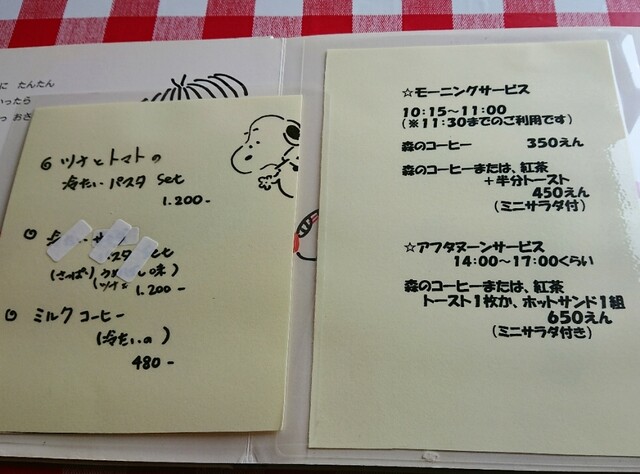 に たんたん
いったら
っ おさ
ツナとトマトの
冷たい パスタ set
1.200-
パスタ set
(さっぱり うめ 味)
1.200-
ミルクコーヒー
(冷たいの)
480-
☆モーニングサービス
10:15～11:00
(※11:30までのご利用です)
森のコーヒー 350えん
森のコーヒーまたは、紅茶
+半分トースト
450えん
(ミニサラダ付)
☆アフタヌーンサービス
14:00～17:00くらい
森のコーヒーまたは、紅茶
トースト1枚か、ホットサンド1組
650えん
(ミニサラダ付き)